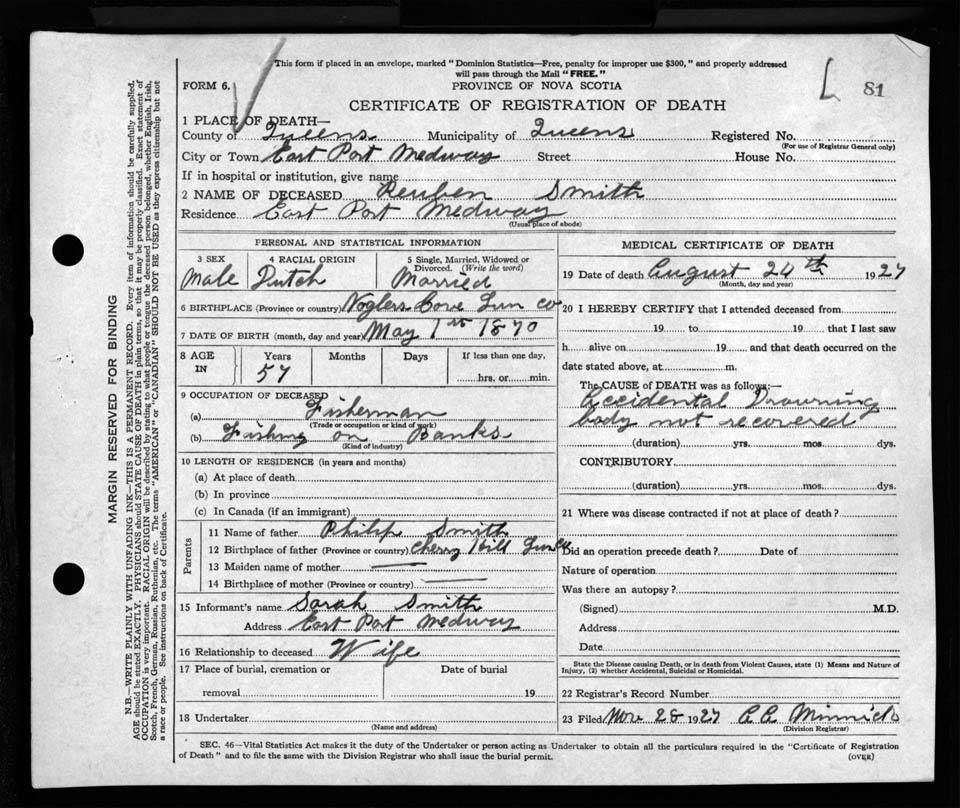 This form if placed in an envelope, marked "Dominion Statistics—Free, penalty for improper use $300," and properly addressed
will pass through the Mail "FREE."
FORM 6.
PROVINCE OF NOVA SCOTIA
L 81
CERTIFICATE OF REGISTRATION OF DEATH
1 PLACE OF DEATH—
County of Queens Municipality of Queens Registered No.
(For use of Registrar General only)
City or Town East Port Medway Street House No.
If in hospital or institution, give name
2 NAME OF DECEASED Reuben Smith
Residence East Port Medway
(Usual place of abode)
PERSONAL AND STATISTICAL INFORMATION
3 SEX 4 RACIAL ORIGIN 5 Single, Married, Widowed or Divorced. (Write the word)
Male Dutch Married
6 BIRTHPLACE (Province or country) Voglers Cove Lun Co
7 DATE OF BIRTH (month, day and year) May 1st 1870
8 AGE IN Years Months Days If less than one day,
57 hrs. or min.
9 OCCUPATION OF DECEASED
(a) Fisherman
(Trade or occupation or kind of work)
(b) Fishing on Banks
(Kind of industry)
10 LENGTH OF RESIDENCE (in years and months)
(a) At place of death
(b) In province
(c) In Canada (if an immigrant)
Parents
11 Name of father Philip Smith
12 Birthplace of father (Province or country) Cherry Hill Lun Co
13 Maiden name of mother —
14 Birthplace of mother (Province or country) —
15 Informant's name Sarah Smith
Address East Port Medway
16 Relationship to deceased Wife
17 Place of burial, cremation or Date of burial
removal 19
18 Undertaker
(Name and address)
MEDICAL CERTIFICATE OF DEATH
19 Date of death August 24th 1927
(Month, day and year)
20 I HEREBY CERTIFY that I attended deceased from
19 to 19 that I last saw
h alive on 19 and that death occurred on the
date stated above, at m.
The CAUSE OF DEATH was as follows:—
Accidental Drowning
body not recovered
(duration) yrs. mos. dys.
CONTRIBUTORY
(duration) yrs. mos. dys.
21 Where was disease contracted if not at place of death?
Did an operation precede death? Date of
Nature of operation
Was there an autopsy?
(Signed) M.D.
Address
Date
State the Disease causing Death, or in death from Violent Causes, state (1) Means and Nature of
Injury, (2) whether Accidental, Suicidal or Homicidal.
22 Registrar's Record Number
23 Filed Nov 28 1927 Minnick
(Division Registrar)
SEC. 46—Vital Statistics Act makes it the duty of the Undertaker or person acting as Undertaker to obtain all the particulars required in the "Certificate of Registration
of Death" and to file the same with the Division Registrar who shall issue the burial permit.
(OVER)
MARGIN RESERVED FOR BINDING
N.B.—WRITE PLAINLY WITH UNFADING INK—THIS IS A PERMANENT RECORD. Every item of information should be carefully supplied.
AGE should be stated EXACTLY. PHYSICIANS should STATE CAUSE OF DEATH in plain terms, so that it may be properly classified. Exact statement of
OCCUPATION is very important. RACIAL ORIGIN will be described by stating to what people or tongue the deceased person belonged, whether English, Irish,
Scotch, French, German, Russian, Ruthenian, etc. The terms "AMERICAN" or "CANADIAN" SHOULD NOT BE USED as they express citizenship but not
a race or people. See instructions on back of Certificate.